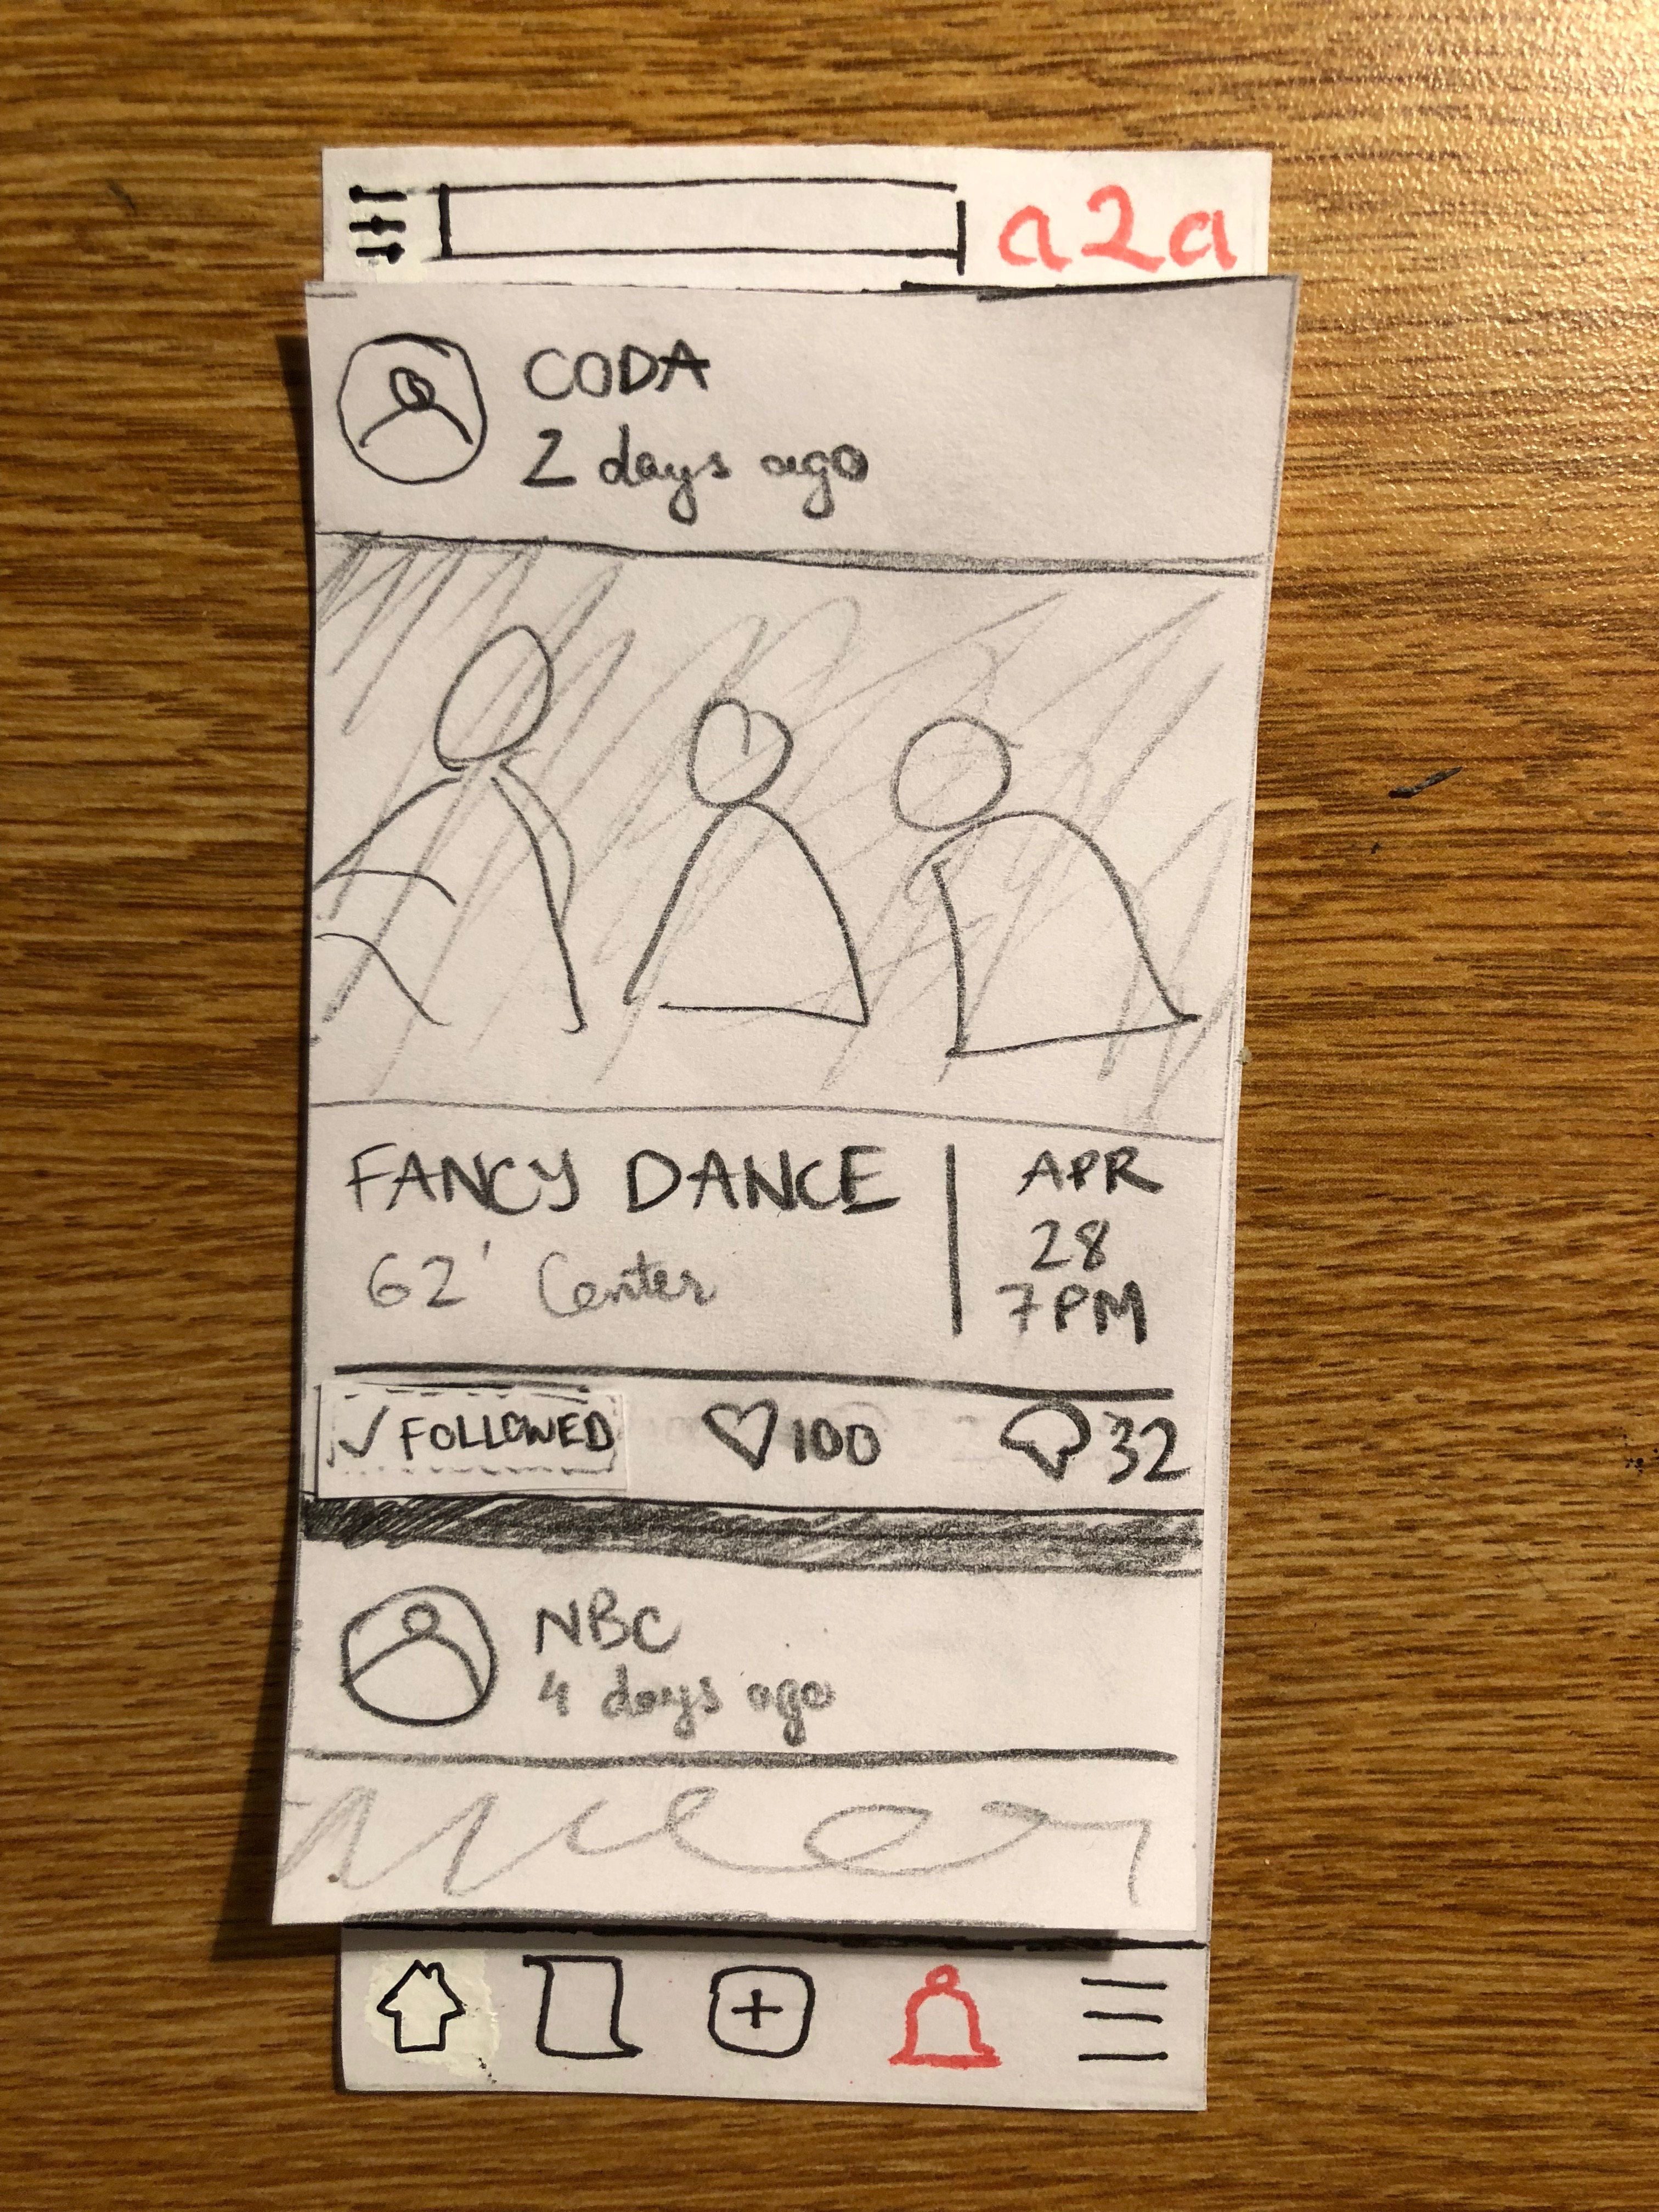 a2a
CODA
2 days ago
FANCY DANCE
62' Center
APR
28
7PM
✓ FOLLOWED
100
32
NBC
4 days ago